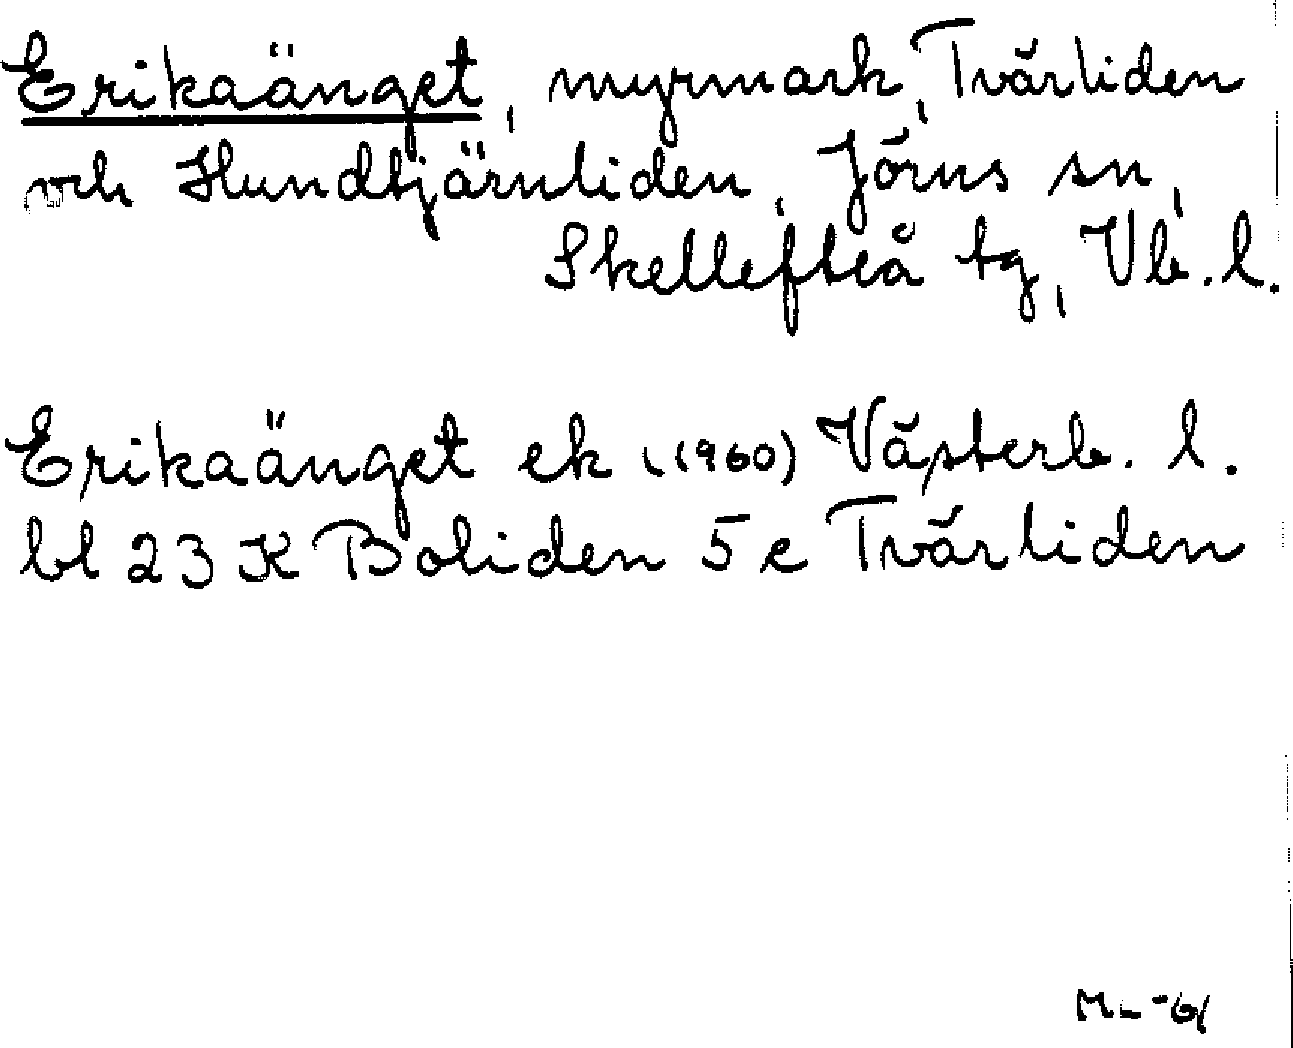 Erikaänget, myrmark, Tvärliden
och Hundtjärnliden, Jörns sn,
Skellefteå tg, Vb. l.
Erikaänget ek (1960) Västerb. l.
bl 23 K Boliden 5 c Tvärliden